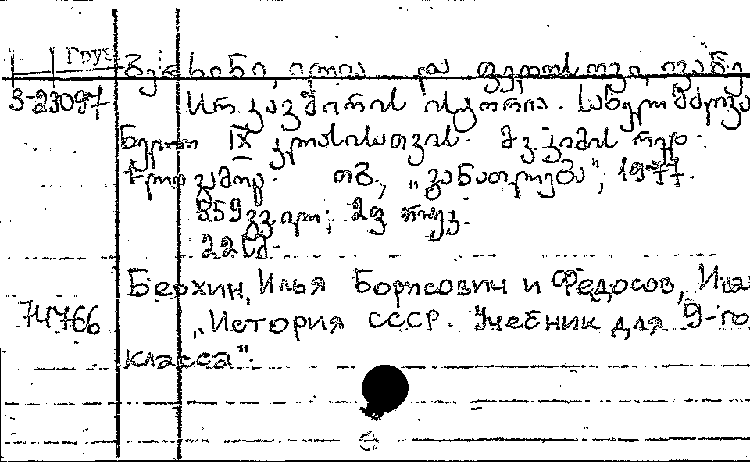 Груз
ბერხინი, ილია და ფედოსოვი, ივანე
3-23097 სსრ კავშირის ისტორია. სახელმძღვა
ნელო IX კლასისათვის. მე-
გამოც. თბ., „განათლება", 1977.
359 გვ. ილ; 
22 სმ.
Берхин, Илья Борисович и Федосов, Ива
74766 „История СССР. Учебник для 9-го
класса".